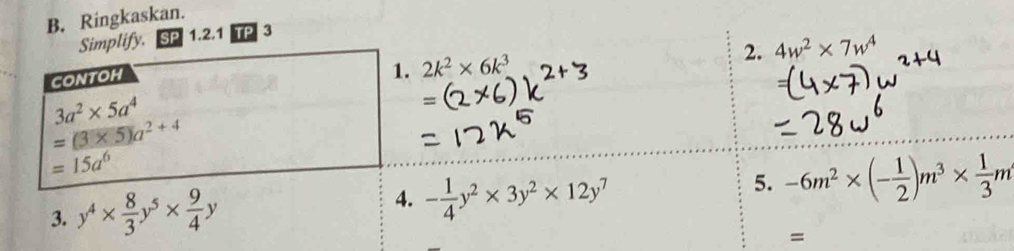 B. Ringkaskan.
Simplify. SP 1.2.1 TP 3
CONTOH
3a² × 5a⁴
= (3 × 5)a²⁺⁴
= 15a⁶
1. 2k² × 6k³
= (2×6)k²⁺³
= 12k⁵
2. 4w² × 7w⁴
= (4×7)w²⁺⁴
= 28w⁶
3. y⁴ × 8/3 y⁵ × 9/4 y
4. −1/4 y² × 3y² × 12y⁷
5. −6m² × (−1/2)m³ × 1/3 m
=